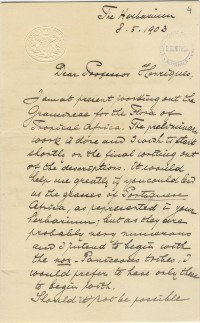 4
The Herbarium
8.5.1903
Dear Professor Henriques,
I am at present working out the
Gramineae for the Flora of
Tropical Africa. The preliminary
work is done and I wish to start
shortly on the final working out
of the descriptions. It would
help me greatly if you could lend
us the grasses of Portuguese
Africa, as represented in your
Herbarium; but as they are
probably very numerous
and I intend to begin with
the non-Paniceous tribes, I
would prefer to have only these
to begin with.
Should it not be possible